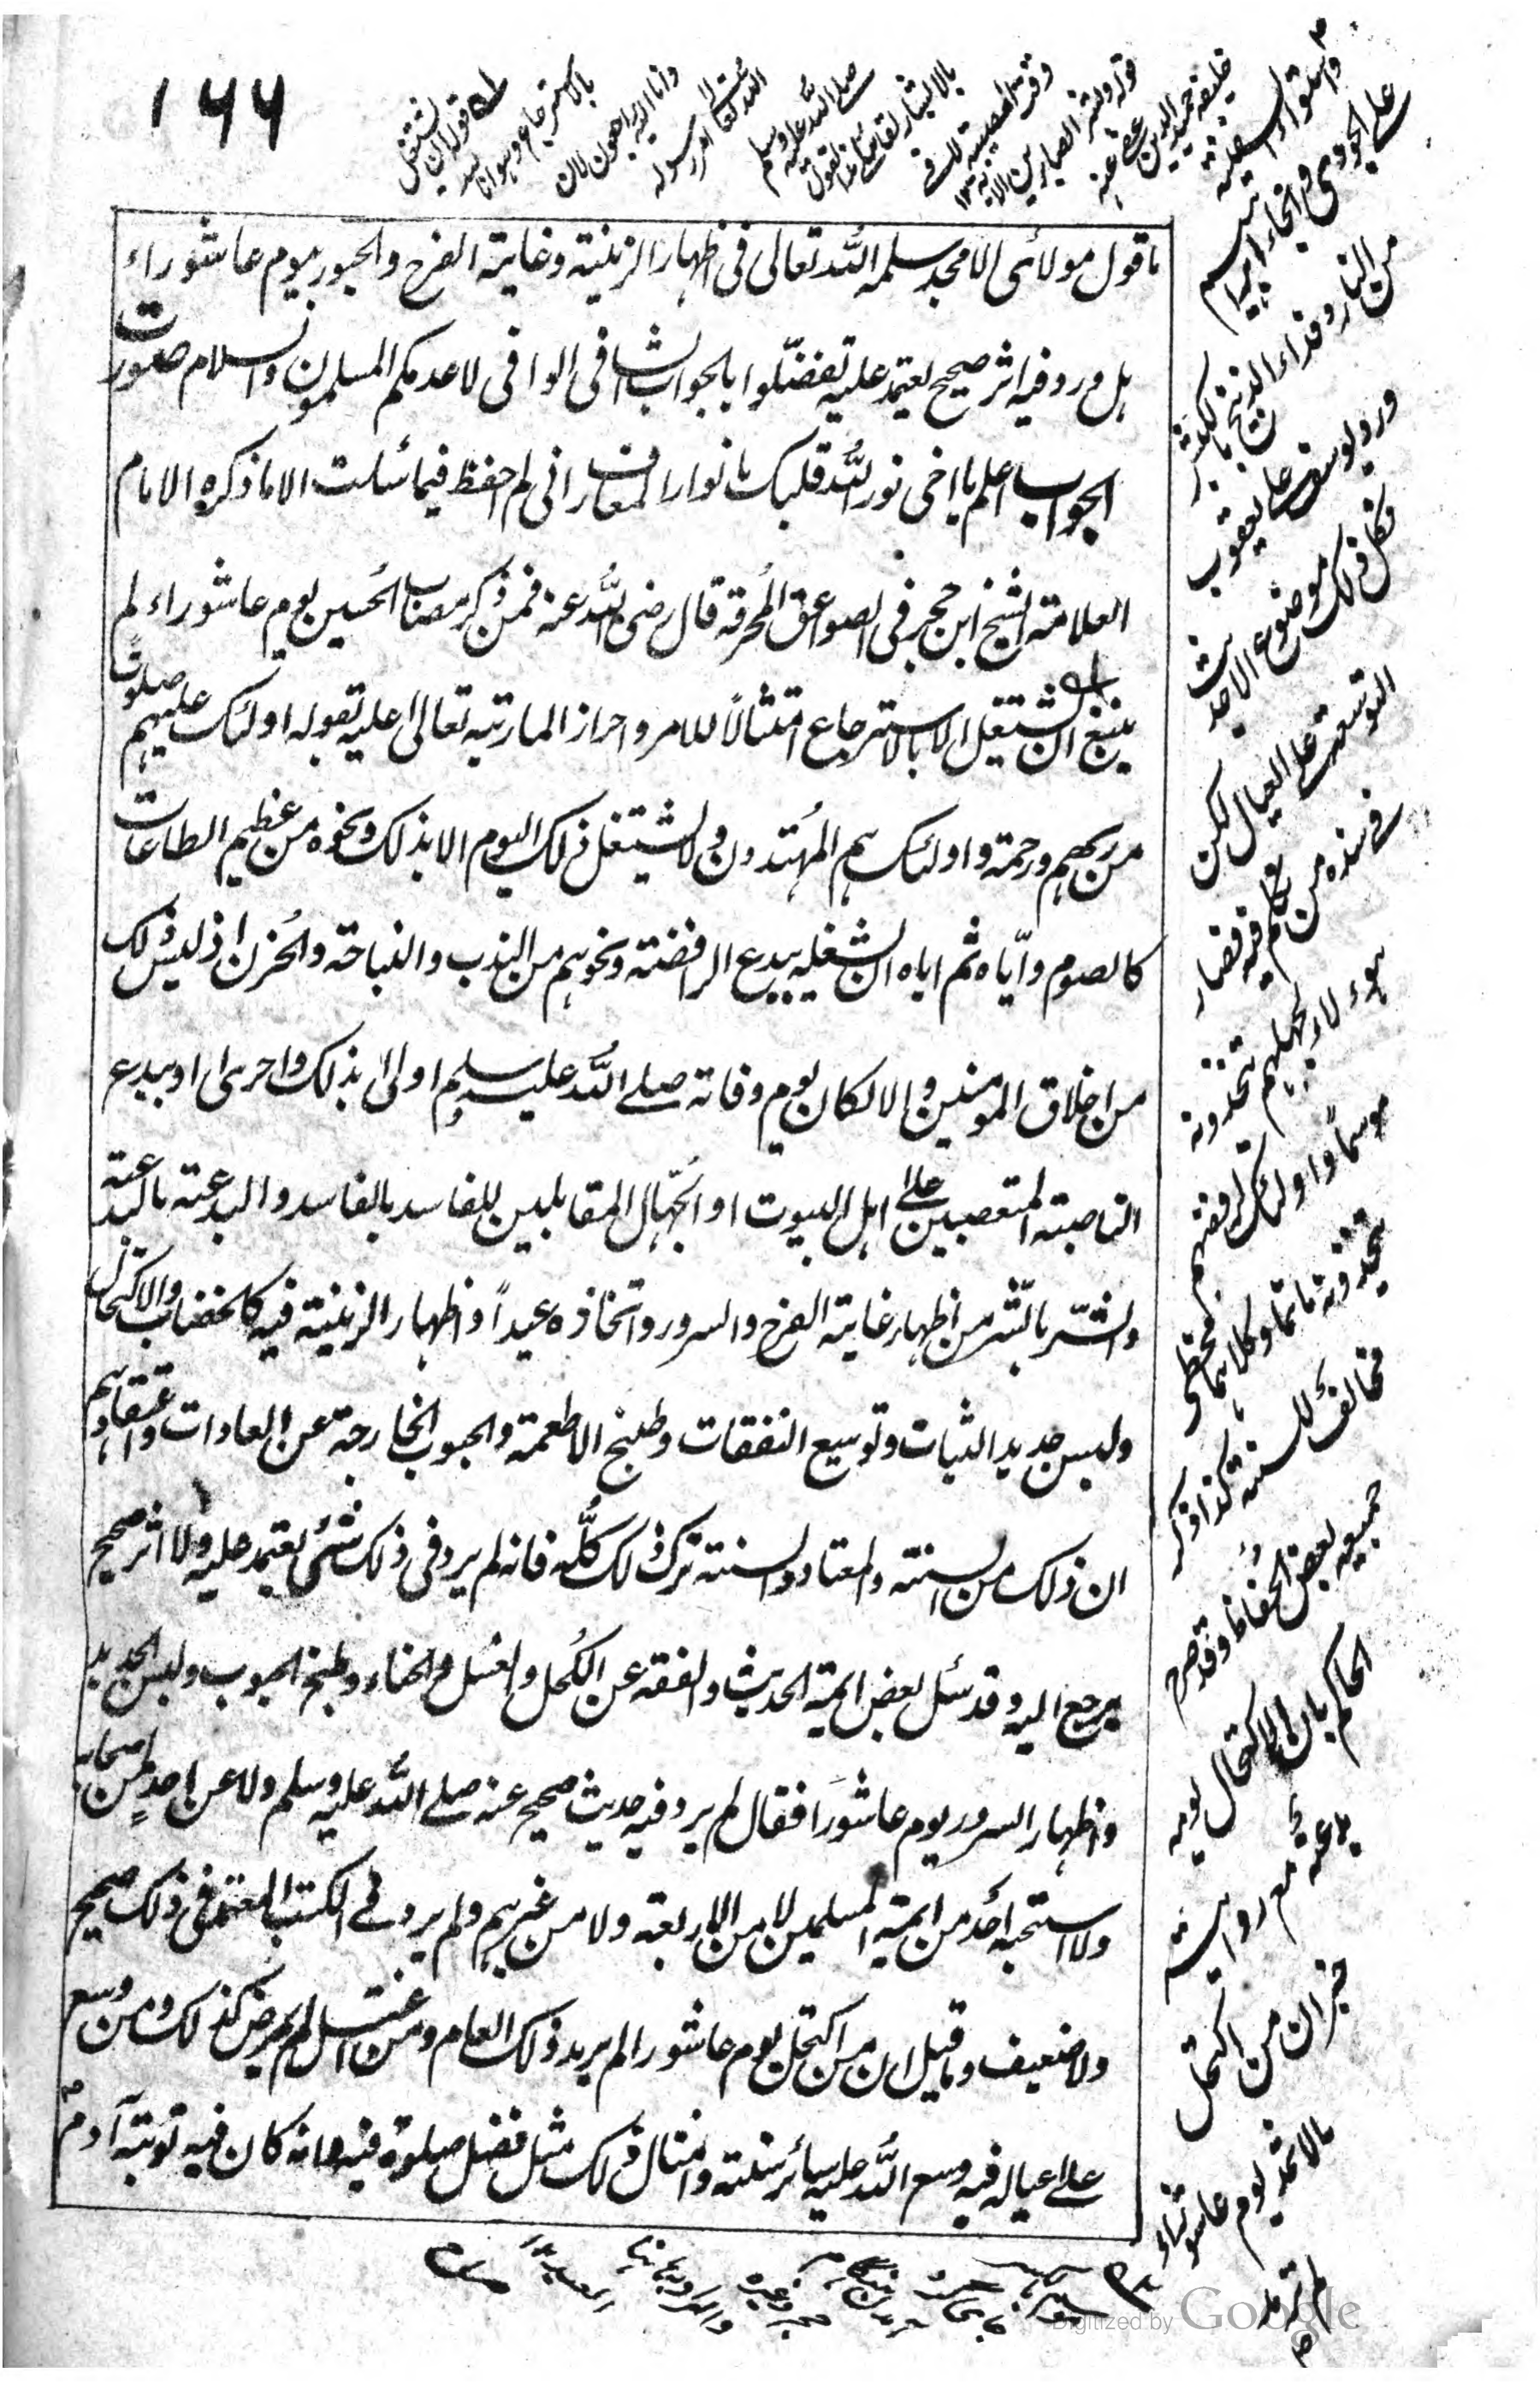 ١٦٦
ما قول مولائى الامجد سلمه الله تعالى فى اظهار الزينة وغاية الفرح والحبور يوم عاشوراء
هل ورد فيه اثر صحيح يعتمد عليه تفضلوا بالجواب الشافى الوافى لا عدمكم المسلمون والسلام صورت
الجواب اعلم يا اخى نور الله قلبك بانوار المعارف انى لم احفظ فيما سئلت الا ما ذكره الامام
العلامة الشيخ ابن حجر فى الصواعق المحرقة قال رضى الله عنه فمن ذكر مصاب الحسين يوم عاشوراء لم
ينبغ ان يشتغل الا بالاسترجاع امتثالاً للامر واحرازا لما رتبه تعالى عليه بقوله اولئك عليهم صلوات
من ربهم ورحمة واولئك هم المهتدون ولا يشتغل ذلك اليوم الا بذلك ونحوه من عظيم الطاعات
كالصوم واياه ثم اياه ان يشغله ببدع الرافضة ونحوهم من الندب والنياحة والحزن اذ ليس ذلك
من اخلاق المومنين والا لكان يوم وفاته صلى الله عليه وسلم اولى بذلك واحرى او ببدع
الناصبة المتعصبين على اهل البيوت او الجهال المقابلين للفاسد بالفاسد والبدعة بالبدعة
والشر بالشر من اظهار غاية الفرح والسرور واتخاذه عيداً واظهار الزينة فيه كالخضاب والاكتحال
ولبس جديد الثياب وتوسيع النفقات وطبخ الاطعمة والحبوب الخارجة عن العادات واعتقادهم
ان ذلك من السنة والمعتاد والسنة ترك ذلك كله فانه لم يرد فى ذلك شئ يعتمد عليه ولا اثر صحيح
يرجع اليه وقد سئل بعض ايمة الحديث والفقه عن الكحل والغسل والحناء وطبخ الحبوب ولبس الجديد
واظهار السرور يوم عاشورا فقال لم يرد فيه حديث صحيح عنه صلى الله عليه وسلم ولا عن احد من اصحابه
ولا استحبه احد من ايمة المسلمين لا من الاربعة ولا من غيرهم ولم يرد فى الكتب المعتمدة فى ذلك صحيح
ولا ضعيف وما قيل ان من اكتحل يوم عاشورا لم يرمد ذلك العام ومن اغتسل لم يمرض كذلك ومن وسع
على عياله فيه وسع الله عليه سائر سنته وامثال ذلك مثل فضل صلوة فيه وانه كان فيه توبة آدم
واستواء السفينة
على الجودى وانجاء ابراهيم
من النار وفداء الذبيح بالكبش
ورد يوسف على يعقوب
فكل ذلك موضوع الاحديث
التوسعة على العيال لكن
فى سنده من تكلم فيه فصار
هؤلاء لجهلهم يتخذونه
موسماً واولئك لرفضهم
يتخذونه ماتما وكلاهما مخطى
مخالف للسنة كذا ذكر
جميعه بعض الحفاظ وقد صرح
الحاكم بان الاكتحال يومه
بدعة مع روايته
خبر ان من اكتحل
بالاثمد يوم عاشوراء
لم ترمد
Digitized by Google